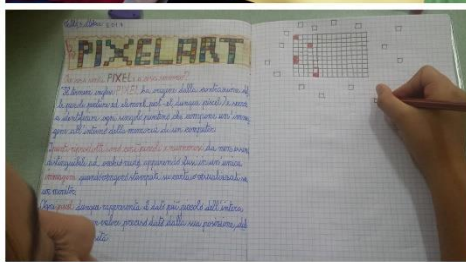 PIXELART
PIXEL
Il termine inglese PIXEL ha origine dalla contrazione di
le parole picture ed element, pict-el, dunque pixel. Esso serve
a identificare ogni singolo puntino che compone un'imma
gine all'interno della memoria di un computer.
Questi sono così piccoli e numerosi da non essere
distinguibili ad occhio nudo, apparendo fusi in un'unica
immagine quando vengono stampati su carta o visualizzati su
un monitor.
Ogni pixel dunque rappresenta il dato più piccolo dell'intera
un valore preciso dato dalla sua posizione, dal